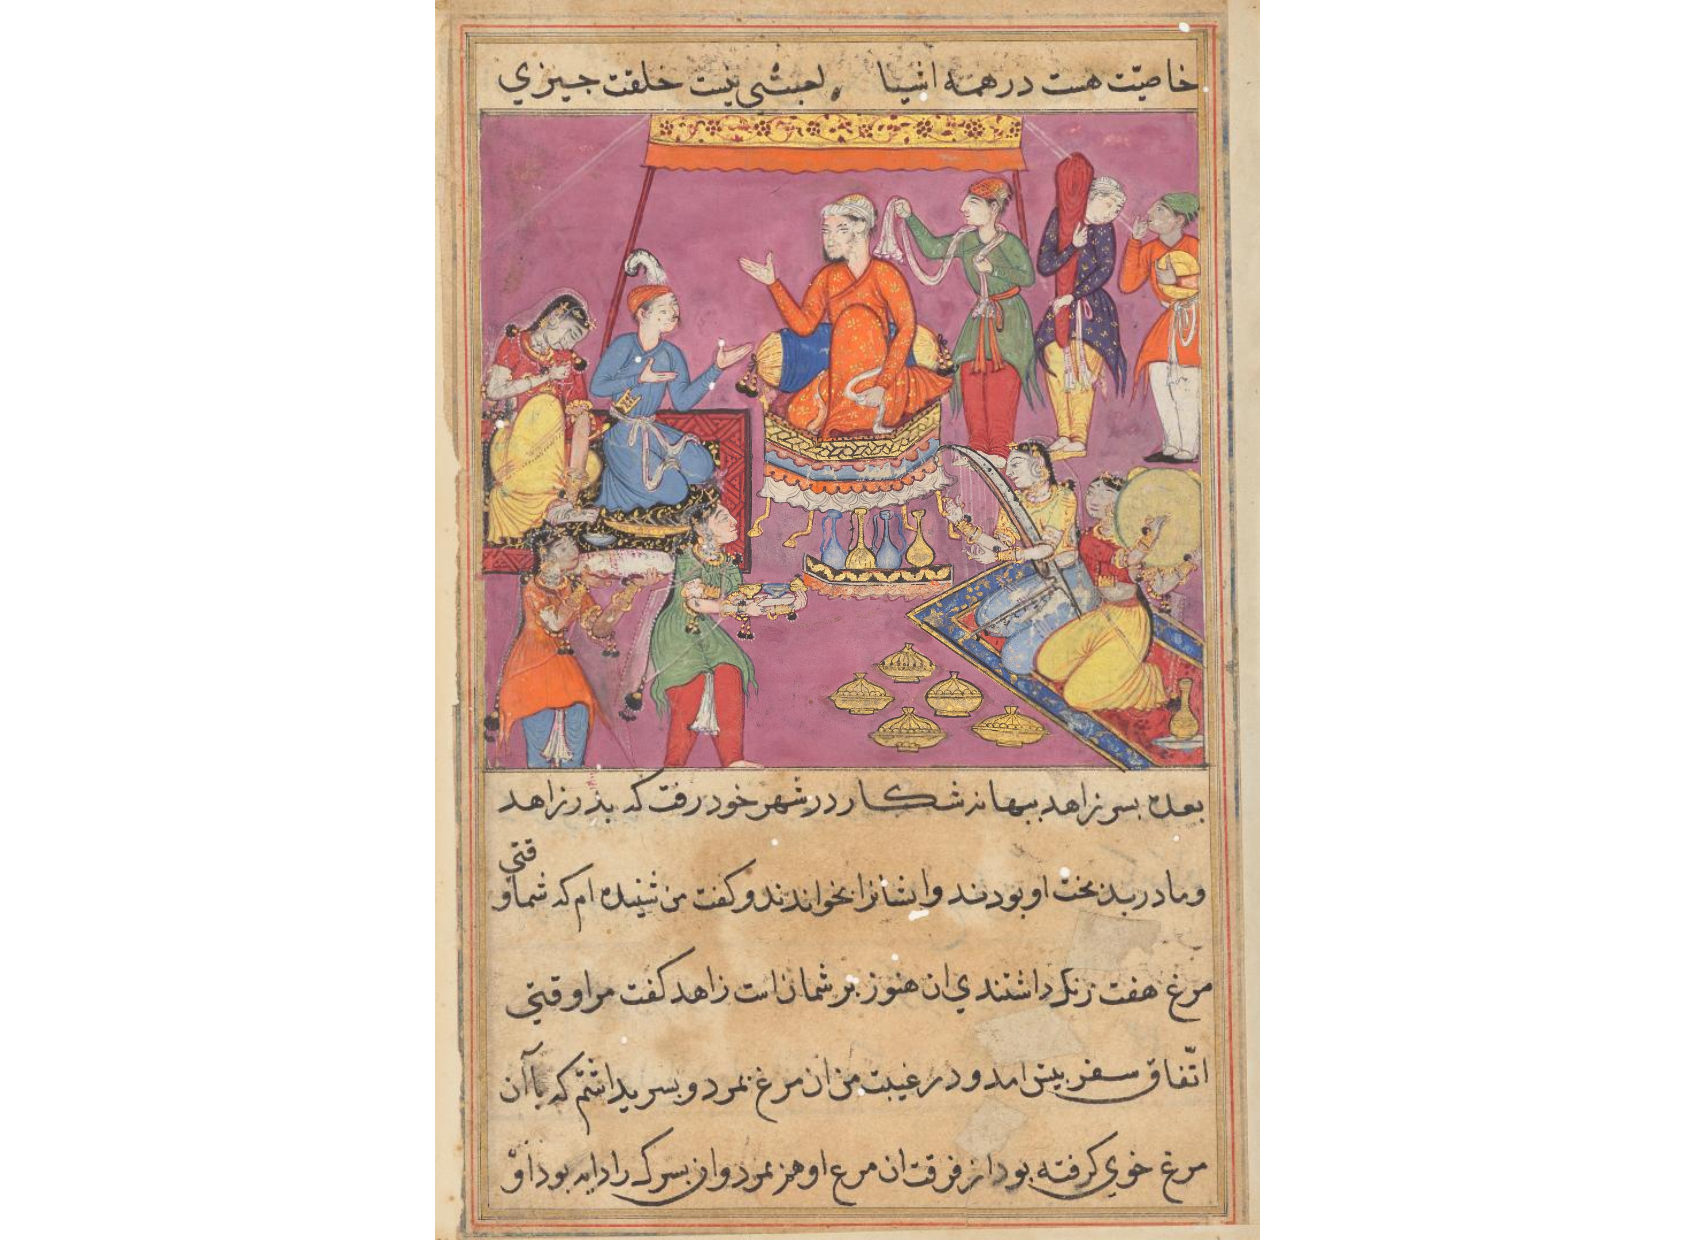 خاصیّت هست در همه اشیا لعبثی نیست خلقت جیزي
بعده بسر زاهد ببهانه شکار در شهر خود رفت که بذر زاهد
و ما در بدبخت او بودند وایشانرا بخواندند و کفت من شنیده ام که شما وقتی
مرغ هفت رنک داشتندي ان هنوز بر شمان است زاهد کفت مرا وقتي
اتّفاق سفر بیش امد و در غیبت من ان مرغ بمرد و بسر یداشتم که باآن
مرغ خوي کرفته بود از فرقت ان مرغ او هم بمرد وان بسرک را دایه بود او